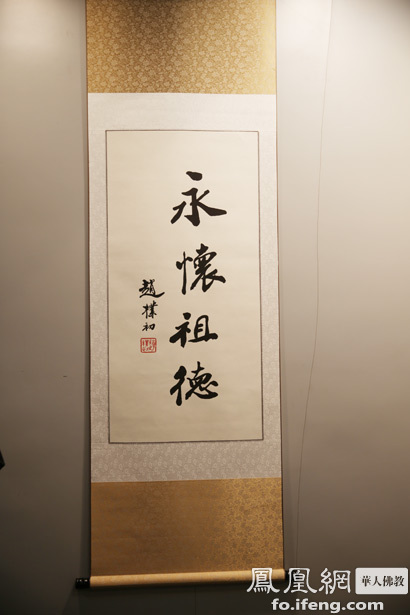 永懷祖德
趙樸初
鳳凰網 華人佛教
fo.ifeng.com